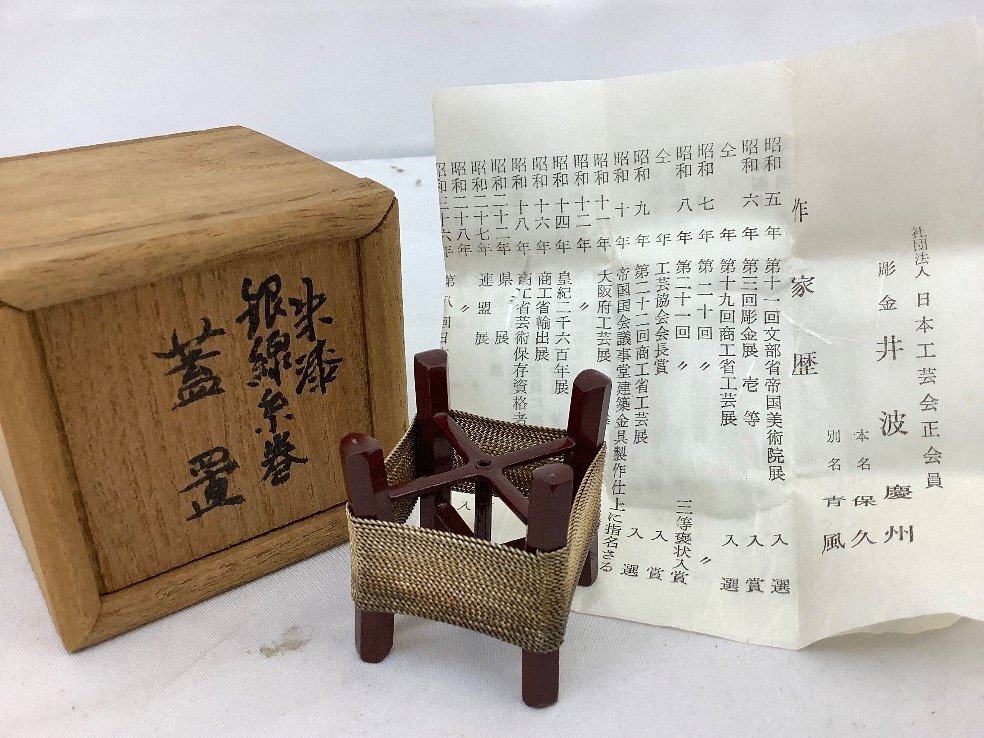 朱漆
銀線糸巻
蓋置
社団法人 日本工芸会正会員
彫金 井波慶州
本名 保久
別名 青風
作家歴
昭和五年 第十一回文部省帝国美術院展 入選
昭和六年 第三回彫金展 壱等 入賞
仝年 第十九回商工省工芸展 入選
昭和七年 第二十回 〃 〃
昭和八年 第二十一回 〃 三等褒状入賞
仝年 工芸協会会長賞 入賞
昭和九年 第二十二回商工省工芸展 入選
昭和十年 帝国国会議事堂建築金具製作仕上に指名さる
昭和十一年 大阪府工芸展
〃十二年 〃
昭和十四年 皇紀二千六百年展
昭和十六年 商工省輸出展 入
昭和十八年 商工省芸術保存資格者
昭和二十二年 県展
昭和二十七年 連盟展
昭和二十八年 〃
昭和二十六年 第八回日